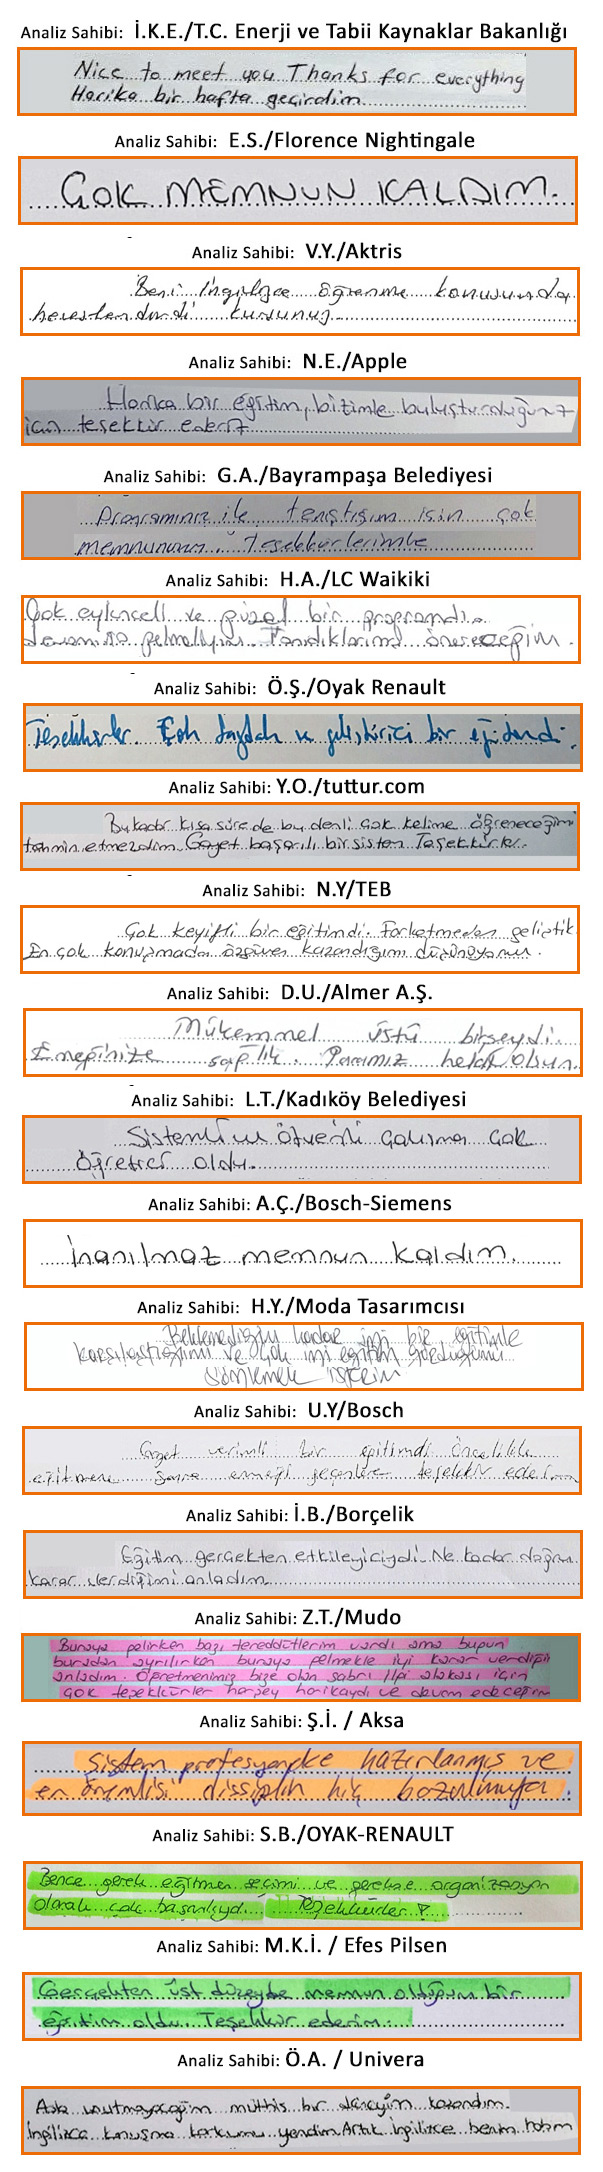 Analiz Sahibi: İ.K.E./T.C. Enerji ve Tabii Kaynaklar Bakanlığı
Nice to meet you Thanks for everything
Harika bir hafta geçirdim
Analiz Sahibi: E.S./Florence Nightingale
ÇOK MEMNUN KALDIM.
Analiz Sahibi: V.Y./Aktris
Beni İngilizce öğrenme konusunda
heveslendirdi kursunuz
Analiz Sahibi: N.E./Apple
Harika bir eğitim, bizimle buluşturduğunuz
için teşekkür ederiz
Analiz Sahibi: G.A./Bayrampaşa Belediyesi
Programınız ile tanıştığım için çok
memnunum. Teşekkürlerimle
Analiz Sahibi: H.A./LC Waikiki
Çok eylenceli ve güzel bir programdı.
devamına gelmeliyim Tanıdıklarıma önereceğim.
Analiz Sahibi: Ö.Ş./Oyak Renault
Teşekkürler. Çok faydalı ve geliştirici bir eğitimdi.
Analiz Sahibi: Y.O./tuttur.com
Bu kadar kısa sürede bu denli çok kelime öğreneceğimi
tahmin etmezdim. Gayet başarılı bir sistem Teşekkürler.
Analiz Sahibi: N.Y/TEB
Çok keyifli bir eğitimdi. Farketmeden geliştik.
En çok konuşmada özgüven kazandığımı düşünüyorum.
Analiz Sahibi: D.U./Almer A.Ş.
Mükemmel üstü birşeydi.
Emeğinize sağlık. Paramız helal olsun.
Analiz Sahibi: L.T./Kadıköy Belediyesi
Sistemli ve özverili çalışma çok
öğretici oldu.
Analiz Sahibi: A.Ç./Bosch-Siemens
İnanılmaz memnun kaldım.
Analiz Sahibi: H.Y./Moda Tasarımcısı
Beklemediğim kadar iyi bir eğitimle
karşılaştığımı ve çok iyi eğitim gördüğümü
söylemek isterim
Analiz Sahibi: U.Y/Bosch
Gayet verimli bir eğitimdi öncelikle
eğitmene sonra emeği geçenlere teşekkür ederim
Analiz Sahibi: İ.B./Borçelik
Eğitim gerçekten etkileyiciydi. Ne kadar doğru
karar verdiğimi anladım
Analiz Sahibi: Z.T./Mudo
Buraya gelirken bazı tereddütlerim vardı ama bugün
buradan ayrılırken buraya gelmekle iyi karar verdiğimi
anladım. Öğretmenimiz bize olan sabrı ilgi alakası için
çok teşekkürler herşey harikaydı ve devam edeceğim
Analiz Sahibi: Ş.İ. / Aksa
Sistem profesyonelce hazırlanmış ve
en önemlisi dissiplin hiç bozulmuyor.
Analiz Sahibi: S.B./OYAK-RENAULT
Bence gerek eğitmen seçimi ve gerekse organizasyon
olarak çok başarılıydı. Teşekkürler!
Analiz Sahibi: M.K.İ. / Efes Pilsen
Gerçekten üst düzeyde memnun olduğum bir
eğitim oldu. Teşekkür ederim.
Analiz Sahibi: Ö.A. / Univera
Asla unutmayacağım müthiş bir deneyim kazandım.
İngilizce konuşma korkumu yendim Artık ingilizce benim hobim